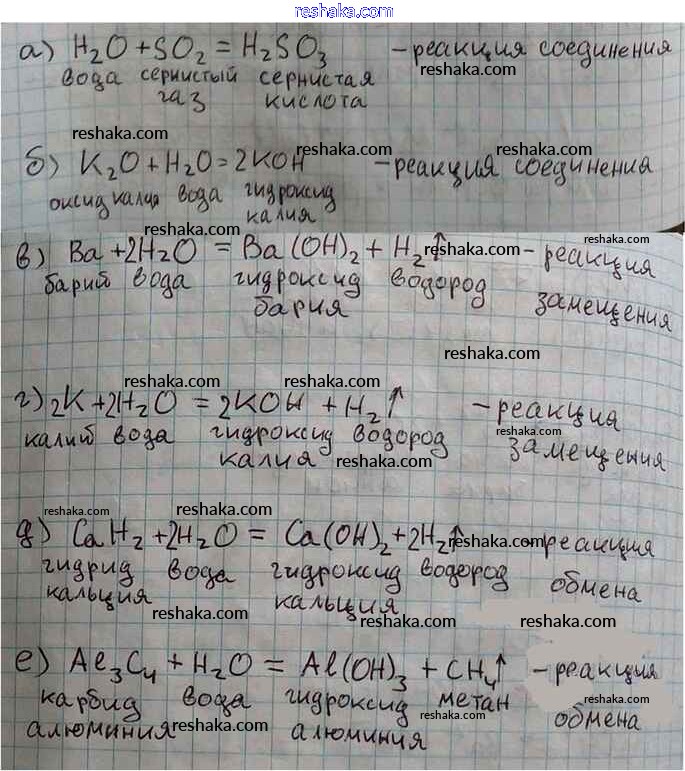 reshaka.com
а) H₂O + SO₂ = H₂SO₃ – реакция соединения
reshaka.com
вода сернистый сернистая
газ кислота
reshaka.com
reshaka.com reshaka.com
б) K₂O + H₂O = 2KOH – реакция соединения
reshaka.com
оксид калия вода гидроксид
калия
reshaka.com
в) Ba + 2H₂O = Ba(OH)₂ + H₂↑ – реакция
барий вода гидроксид водород замещения
бария
reshaka.com
reshaka.com reshaka.com
г) 2K + 2H₂O = 2KOH + H₂↑ – реакция
reshaka.com
калий вода гидроксид водород замещения
калия reshaka.com
reshaka.com reshaka.com reshaka.com
д) CaH₂ + 2H₂O = Ca(OH)₂ + 2H₂↑ – реакция
гидрид вода гидроксид водород обмена
reshaka.com
кальция кальция
reshaka.com reshaka.com
е) Al₃C₄ + H₂O = Al(OH)₃ + CH₄↑ – реакция
карбид вода гидроксид метан обмена
reshaka.com
reshaka.com reshaka.com reshaka.com
алюминия алюминия
reshaka.com